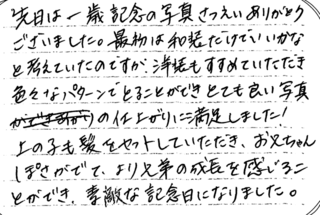 先日は一歳記念の写真さつえいありがとう
ございました。最初は和装だけでいいかな
と考えていたのですが、洋装もすすめていただき
色々なパターンでとることができとても良い写真
の仕上がりに満足しました!
上の子も髪をセットしていただき、お兄ちゃん
ぽさがでて、より兄弟の成長を感じるこ
とができ、素敵な記念日になりました。